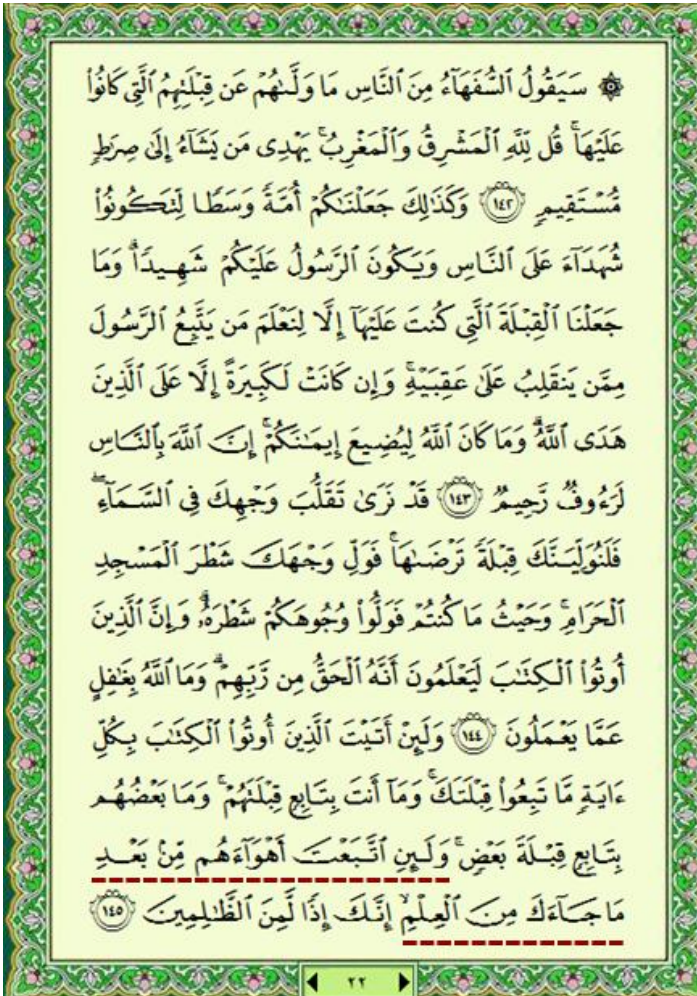 ۞ سَيَقُولُ ٱلسُّفَهَآءُ مِنَ ٱلنَّاسِ مَا وَلَّىٰهُمْ عَن قِبْلَتِهِمُ ٱلَّتِى كَانُوا۟
عَلَيْهَا ۚ قُل لِّلَّهِ ٱلْمَشْرِقُ وَٱلْمَغْرِبُ ۚ يَهْدِى مَن يَشَآءُ إِلَىٰ صِرَٰطٍ
مُّسْتَقِيمٍ ﴿١٤٢﴾ وَكَذَٰلِكَ جَعَلْنَٰكُمْ أُمَّةً وَسَطًا لِّتَكُونُوا۟
شُهَدَآءَ عَلَى ٱلنَّاسِ وَيَكُونَ ٱلرَّسُولُ عَلَيْكُمْ شَهِيدًا ۗ وَمَا
جَعَلْنَا ٱلْقِبْلَةَ ٱلَّتِى كُنتَ عَلَيْهَآ إِلَّا لِنَعْلَمَ مَن يَتَّبِعُ ٱلرَّسُولَ
مِمَّن يَنقَلِبُ عَلَىٰ عَقِبَيْهِ ۚ وَإِن كَانَتْ لَكَبِيرَةً إِلَّا عَلَى ٱلَّذِينَ
هَدَى ٱللَّهُ ۗ وَمَا كَانَ ٱللَّهُ لِيُضِيعَ إِيمَٰنَكُمْ ۚ إِنَّ ٱللَّهَ بِٱلنَّاسِ
لَرَءُوفٌ رَّحِيمٌ ﴿١٤٣﴾ قَدْ نَرَىٰ تَقَلُّبَ وَجْهِكَ فِى ٱلسَّمَآءِ ۖ
فَلَنُوَلِّيَنَّكَ قِبْلَةً تَرْضَىٰهَا ۚ فَوَلِّ وَجْهَكَ شَطْرَ ٱلْمَسْجِدِ
ٱلْحَرَامِ ۚ وَحَيْثُ مَا كُنتُمْ فَوَلُّوا۟ وُجُوهَكُمْ شَطْرَهُۥ ۗ وَإِنَّ ٱلَّذِينَ
أُوتُوا۟ ٱلْكِتَٰبَ لَيَعْلَمُونَ أَنَّهُ ٱلْحَقُّ مِن رَّبِّهِمْ ۗ وَمَا ٱللَّهُ بِغَٰفِلٍ
عَمَّا يَعْمَلُونَ ﴿١٤٤﴾ وَلَئِنْ أَتَيْتَ ٱلَّذِينَ أُوتُوا۟ ٱلْكِتَٰبَ بِكُلِّ
ءَايَةٍ مَّا تَبِعُوا۟ قِبْلَتَكَ ۚ وَمَآ أَنتَ بِتَابِعٍ قِبْلَتَهُمْ ۚ وَمَا بَعْضُهُم
بِتَابِعٍ قِبْلَةَ بَعْضٍ ۚ وَلَئِنِ ٱتَّبَعْتَ أَهْوَآءَهُم مِّنۢ بَعْدِ
مَا جَآءَكَ مِنَ ٱلْعِلْمِ ۙ إِنَّكَ إِذًا لَّمِنَ ٱلظَّٰلِمِينَ ﴿١٤٥﴾
٢٢